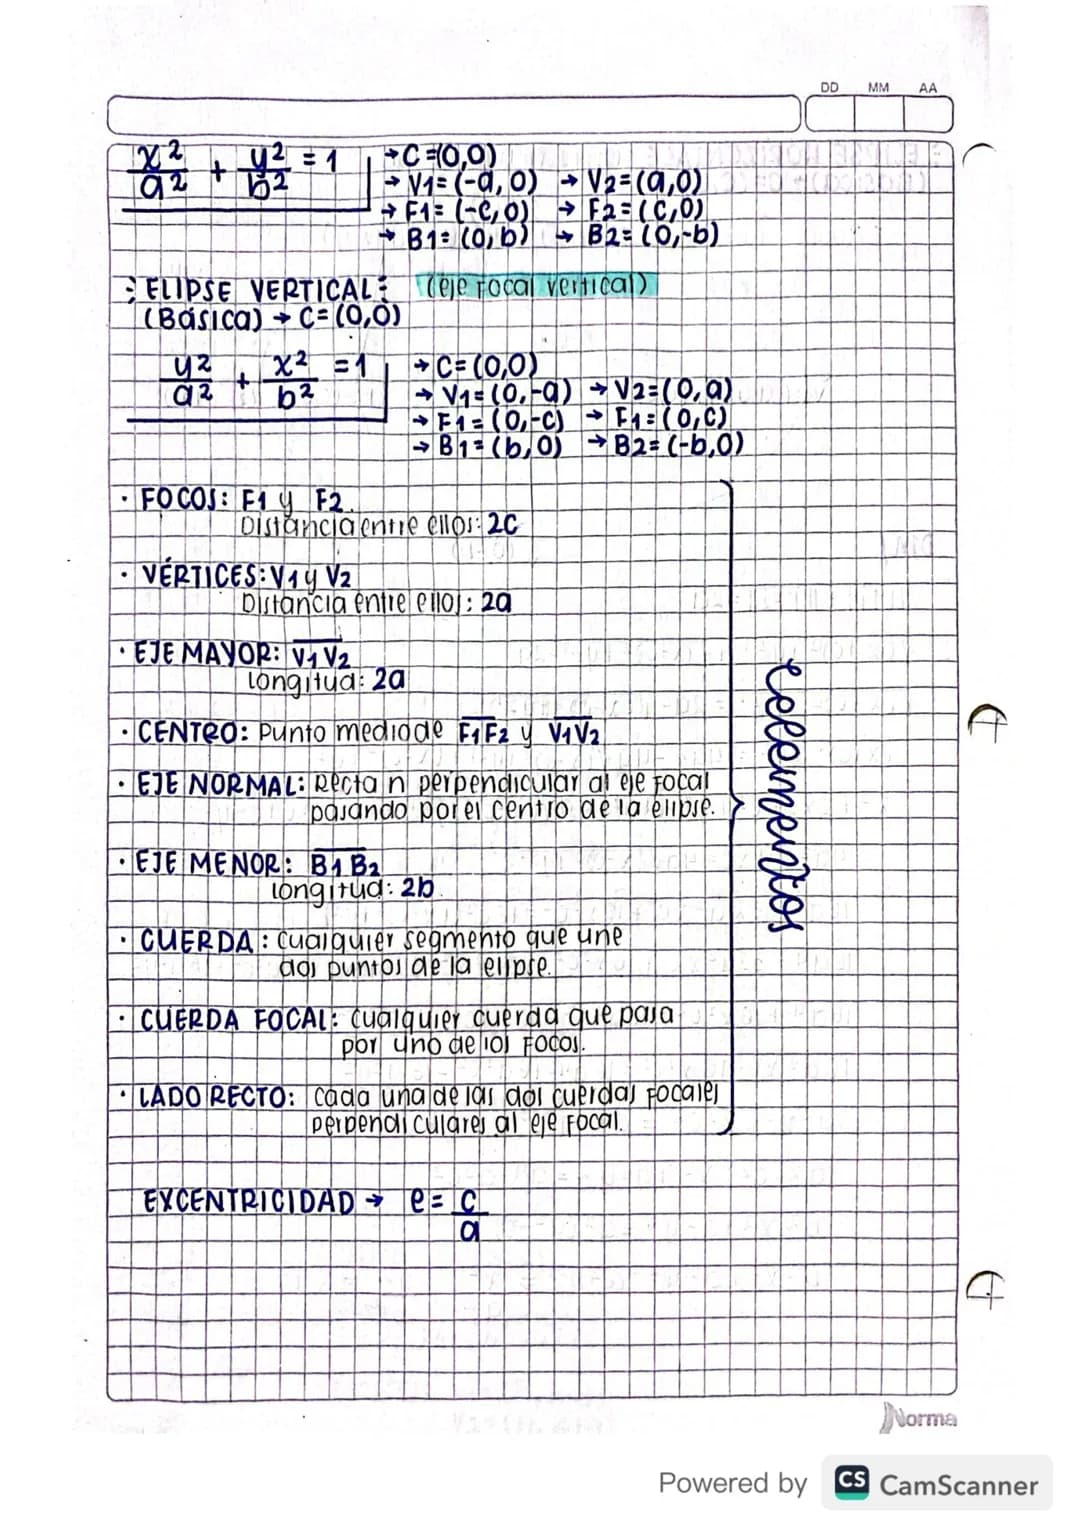 DD MM AA
x²/a² + y²/b² = 1
→ C = (0,0)
→ V1 = (-a, 0) → V2 = (a,0)
→ F1 = (-c, 0) → F2 = (c,0)
→ B1 = (0, b) → B2 = (0,-b)
ELIPSE VERTICAL: (eje Focal vertical)
(Básica) → C = (0,0)
y²/a² + x²/b² = 1
→ C = (0,0)
→ V1 = (0,-a) → V2 = (0,a)
→ F1 = (0,-c) → F1 = (0,c)
→ B1 = (b,0) → B2 = (-b,0)
· FOCOS: F1 y F2.
Distancia entre ellos: 2c
· VÉRTICES: V1 y V2
Distancia entre ellos: 2a
· EJE MAYOR: V1 V2
longitud: 2a
· CENTRO: Punto medio de F1F2 y V1V2
· EJE NORMAL: Recta n perpendicular al eje Focal
pasando por el centro de la elipse.
· EJE MENOR: B1 B2
longitud: 2b.
· CUERDA: cualquier segmento que une
dos puntos de la elipse.
· CUERDA FOCAL: cualquier cuerda que pasa
por uno de los Focos.
· LADO RECTO: cada una de las dos cuerdas Focales
perpendiculares al eje Focal.
EXCENTRICIDAD → e = c/a
Norma
Powered by CS CamScanner